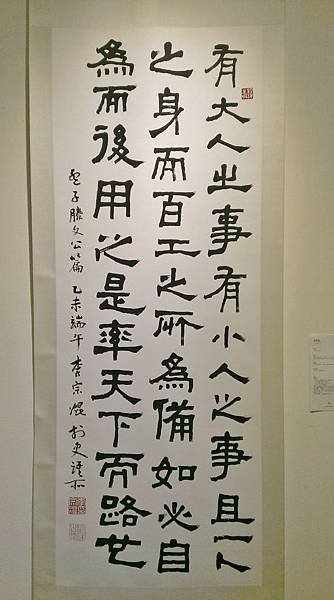 有大人之事有小人之事且一人
之身而百工之所為備如必自
為而後用之是率天下而路也
孟子滕文公篇 乙未端午 李宗焜 於史語所